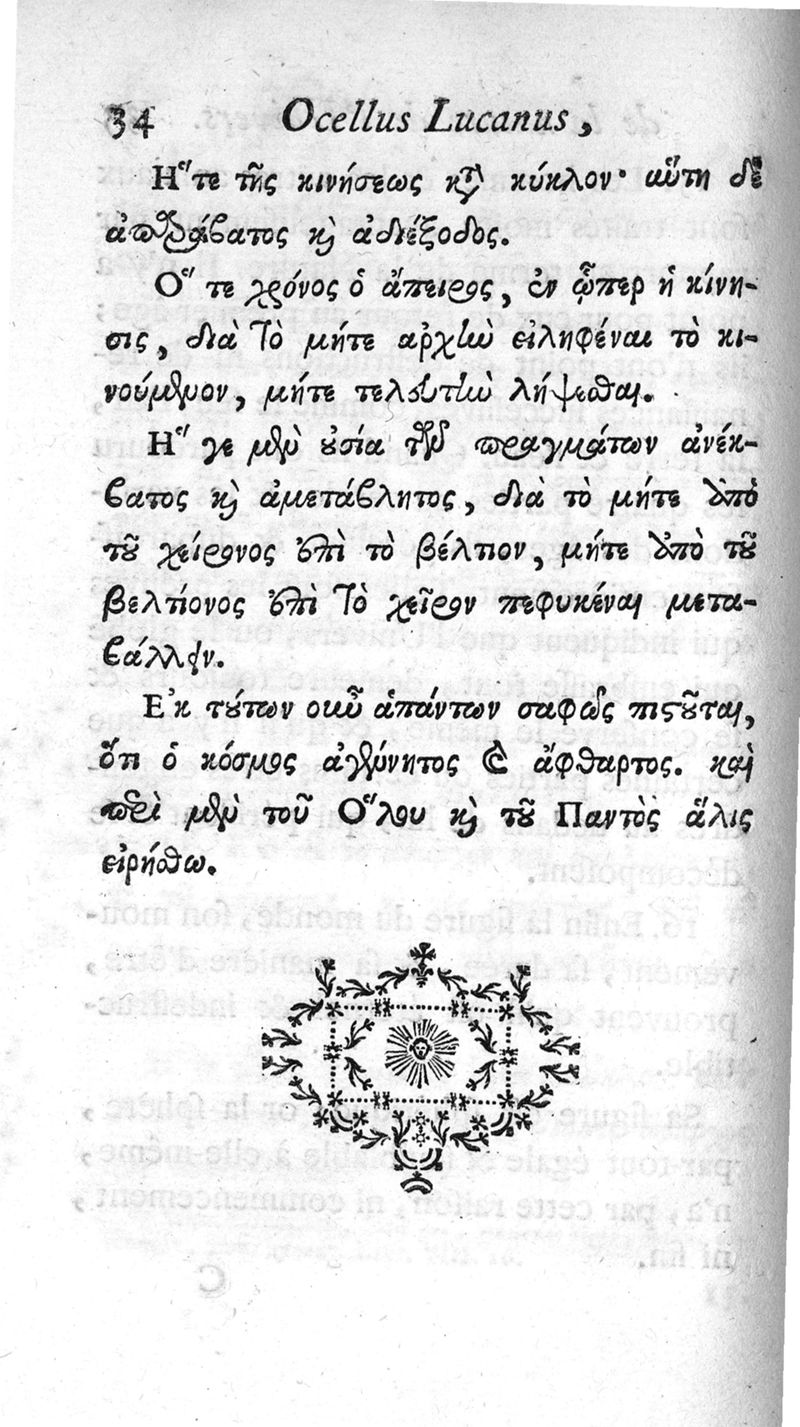 34 Ocellus Lucanus,
Η῞τε τῆς κινήσεως κατὰ κύκλον· αὕτη δὲ
ἀπαράβατος καὶ ἀδιέξοδος.
Ο῞ τε χρόνος ὁ ἄπειρος, ἐν ᾧπερ ἡ κίνη-
σις, διὰ τὸ μήτε ἀρχὴν εἰληφέναι τὸ κι-
νούμενον, μήτε τελευτὴν λήψεσθαι.
Η῞ γε μὲν οὐσία τῶν πραγμάτων ἀνέκ-
βατος καὶ ἀμετάβλητος, διὰ τὸ μήτε ἀπὸ
τοῦ χείρονος ἐπὶ τὸ βέλτιον, μήτε ἀπὸ τοῦ
βελτίονος ἐπὶ τὸ χεῖρον πεφυκέναι μετα-
βάλλειν.
Ε᾿κ τούτων οὖν ἁπάντων σαφῶς πιστοῦται,
ὅτι ὁ κόσμος ἀγέννητος καὶ ἄφθαρτος. καὶ
περὶ μὲν τοῦ Ο῞λου καὶ τοῦ Παντὸς ἅλις
εἰρήσθω.